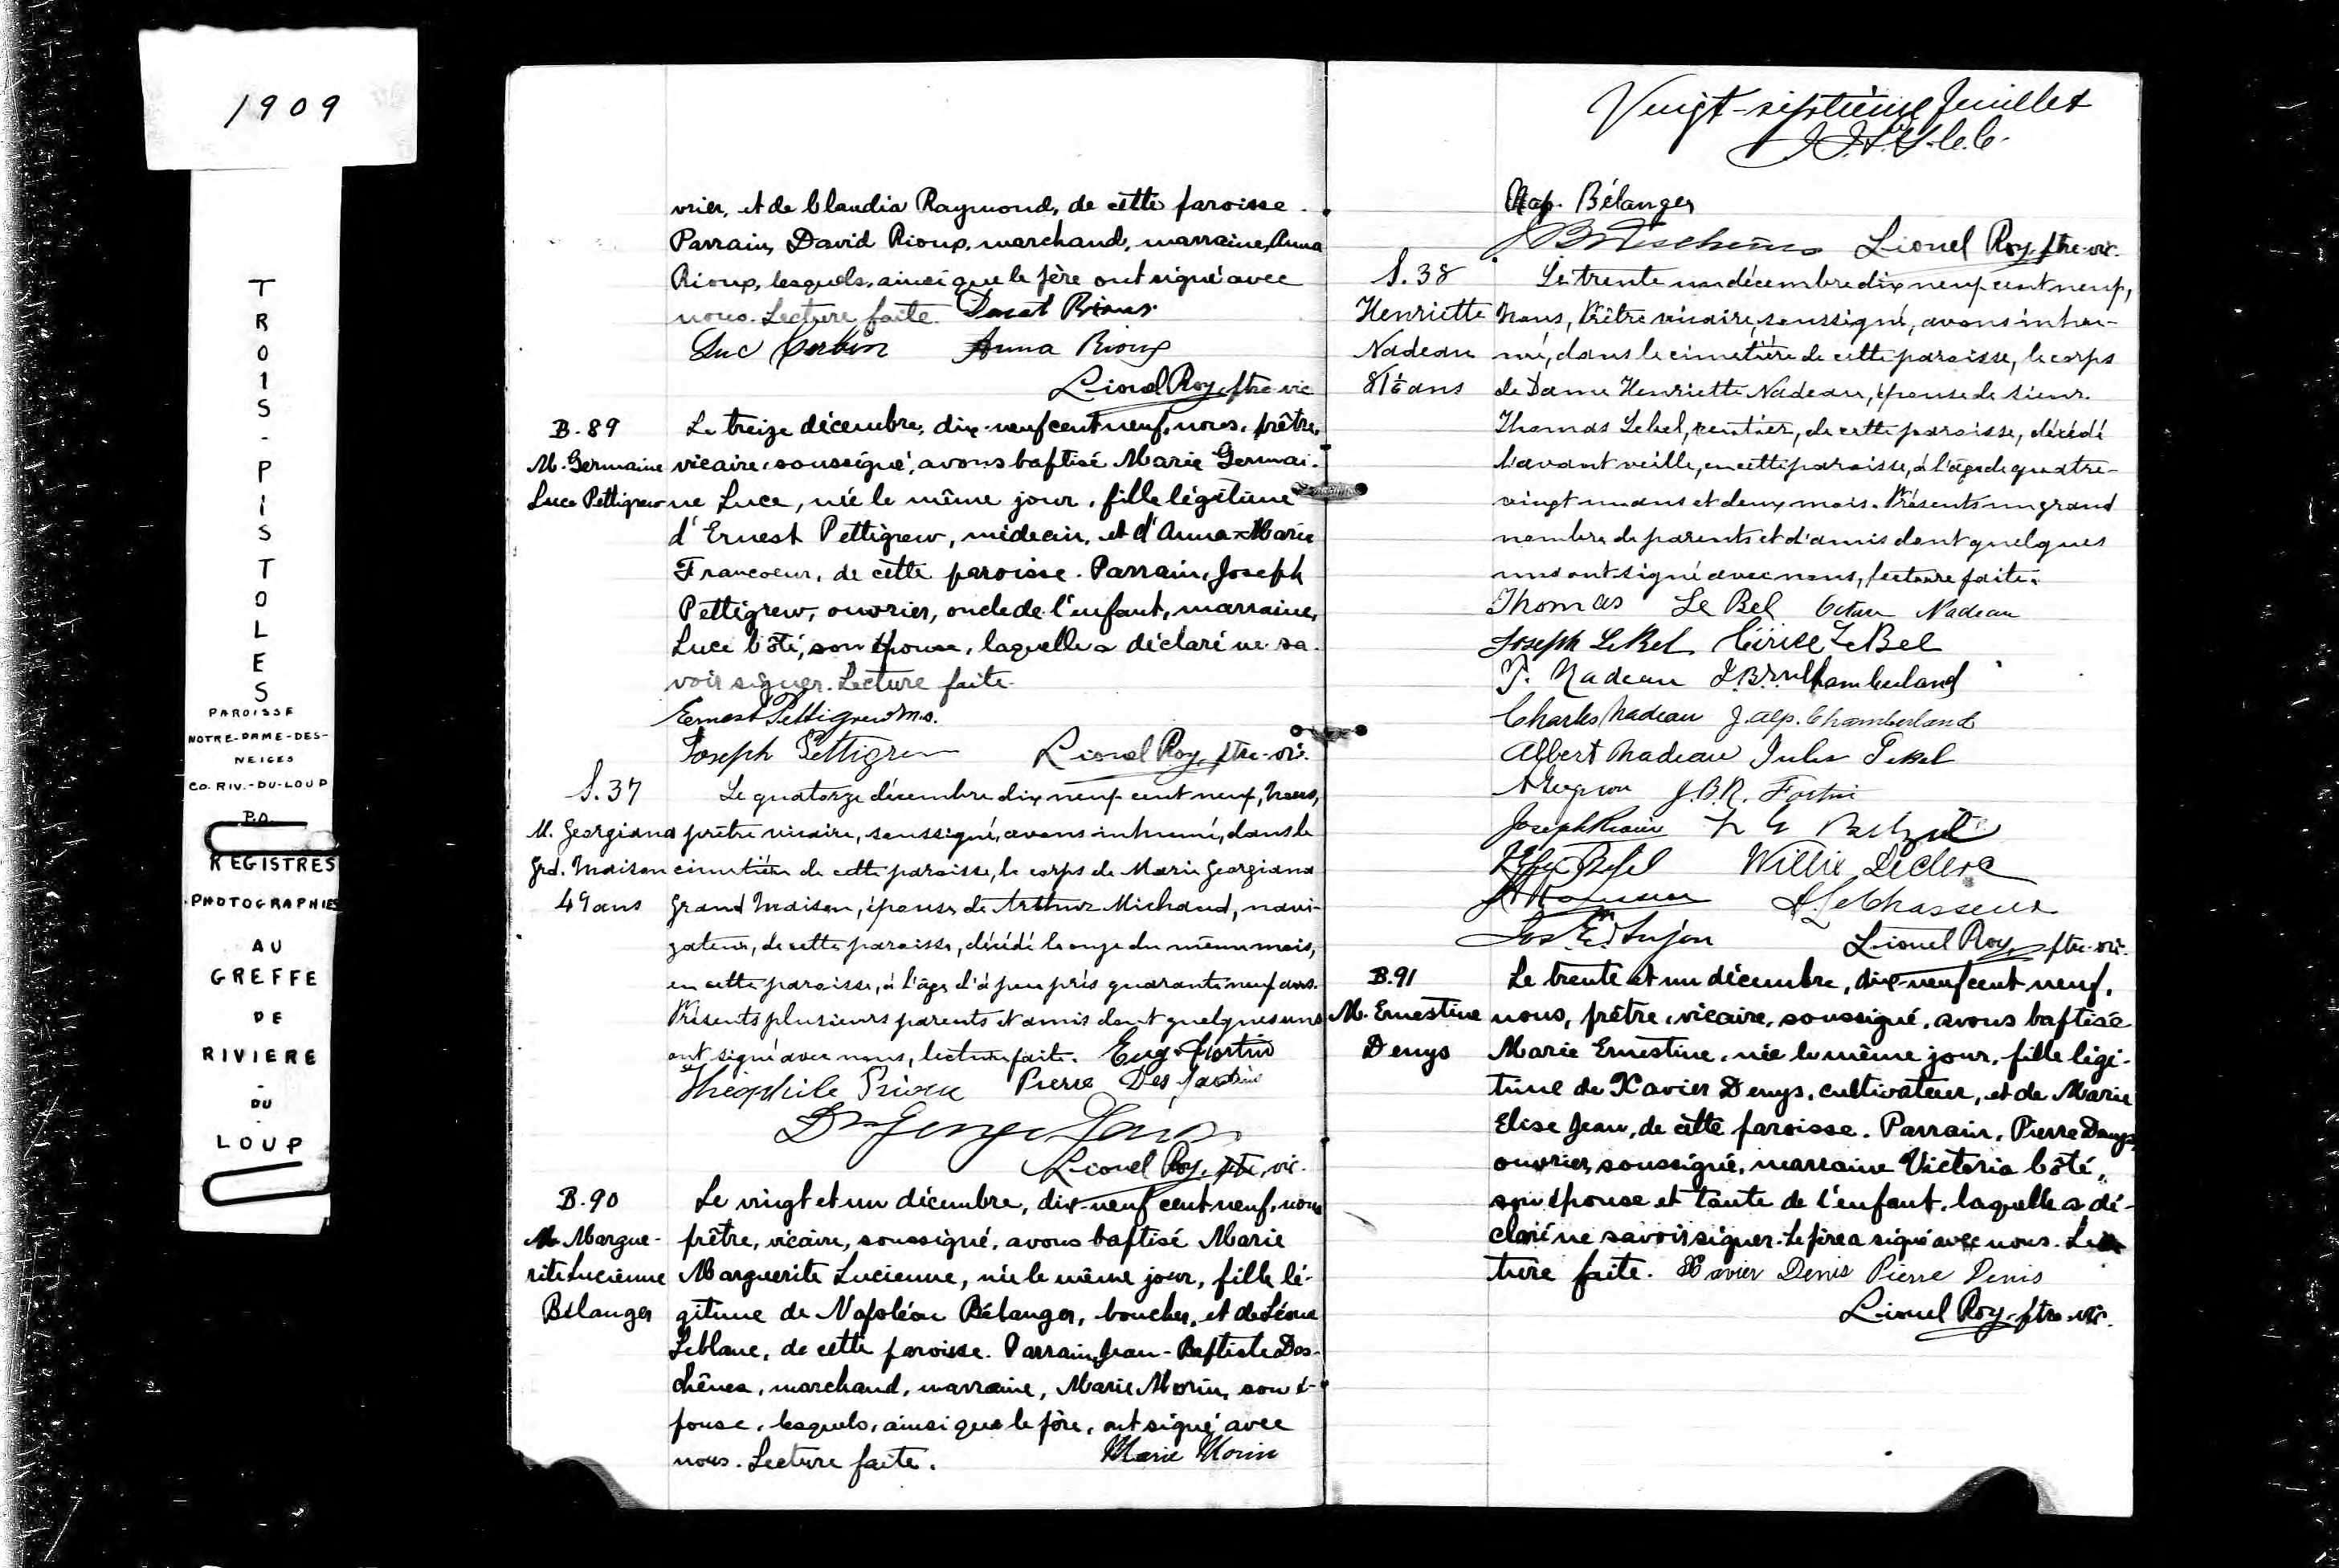 1909
TROIS-PISTOLES
PAROISSE
NOTRE-DAME-DES-
NEIGES
CO. RIV.-DU-LOUP
P.Q.
REGISTRES
PHOTOGRAPHIES
AU
GREFFE
DE
RIVIERE
-
DU
-
LOUP
vrier, et de Claudia Raymond, de cette paroisse.
Parrain, David Rioux, marchand, marraine, Anna
Rioux, lesquels, ainsi que le père ont signé avec
nous. Lecture faite. Rioux
Luc Anna Rioux
Lionel Roy, ptre-vic
B.89
M. Germaine
Luce Pettigrew
Le treize décembre, dix-neuf cent neuf, nous, prêtre,
vicaire soussigné, avons baptisé Marie Germai-
ne Luce, née le même jour, fille légitime
d'Ernest Pettigrew, médecin, et d'Anna-Marie
Francoeur, de cette paroisse. Parrain, Joseph
Pettigrew, ouvrier, oncle de l'enfant, marraine,
Luce Côté, son épouse, laquelle a déclaré ne sa-
voir signer. Lecture faite.
Ernest Pettigrew M.D.
Joseph Pettigrew Lionel Roy, ptre-vic.
S.37
M. Georgiana
Grd. Maison
49 ans
Le quatorze décembre dix neuf cent neuf, Nous,
prêtre vicaire, soussigné, avons inhumé, dans le
cimetière de cette paroisse, le corps de Marie Georgiana
Grand Maison, épouse de Arthur Michaud, navi-
gateur, de cette paroisse, décédé le onze du même mois,
en cette paroisse, à l'âge d'à peu près quarante neuf ans.
Présents plusieurs parents et amis dont quelques uns
ont signé avec nous, lecture faite. Eug. Fortin
Théophile Rioux Pierre Des Jardins
Lionel Roy, ptre, vic.
B.90
M. Margue-
rite Lucienne
Bélanger
Le vingt et un décembre, dix-neuf cent neuf, nous
prêtre, vicaire, soussigné, avons baptisé Marie
Marguerite Lucienne, née le même jour, fille lé-
gitime de Napoléon Bélanger, boucher, et de Léona
Leblanc, de cette paroisse. Parrain, Jean-Baptiste Des-
chênes, marchand, marraine, Marie Morin, son é-
pouse, lesquels, ainsi que le père, ont signé avec
nous. Lecture faite. Marie Morin
Vingt-septième feuillet
Nap. Bélanger
JB Deschênes Lionel Roy, ptre-vic.
S.38
Henriette
Nadeau
81 1/6 ans
Le trente un décembre dix neuf cent neuf,
Nous, Prêtre vicaire, soussigné, avons inhu-
mé, dans le cimetière de cette paroisse, le corps
de Dame Henriette Nadeau, épouse de sieur
Thomas Lebel, rentier, de cette paroisse, décédé
l'avant veille, en cette paroisse, à l'âge de quatre-
vingt un ans et deux mois. Présents un grand
nombre de parents et d'amis dont quelques
uns ont signé avec nous, lecture faite.
Thomas Le Bel Nadeau
Joseph LeBel LeBel
T. Nadeau Chamberland
Charles Nadeau J. Alp. Chamberland
Albert Nadeau Jules
J.B.R. Fortin
Joseph Rioux
Willie Leclerc
LeChasseur
Lionel Roy, ptre-vic.
B.91
M. Ernestine
Denys
Le trente et un décembre, dix-neuf cent neuf,
nous, prêtre, vicaire, soussigné, avons baptisé
Marie Ernestine, née le même jour, fille légi-
time de Xavier Denys, cultivateur, et de Marie
Elise Jean, de cette paroisse. Parrain, Pierre Denys,
ouvrier, soussigné, marraine Victoria Côté,
son épouse et tante de l'enfant, laquelle a dé-
claré ne savoir signer. Le père a signé avec nous. Lec-
ture faite. Xavier Denis Pierre Denis
Lionel Roy, ptre-vic.